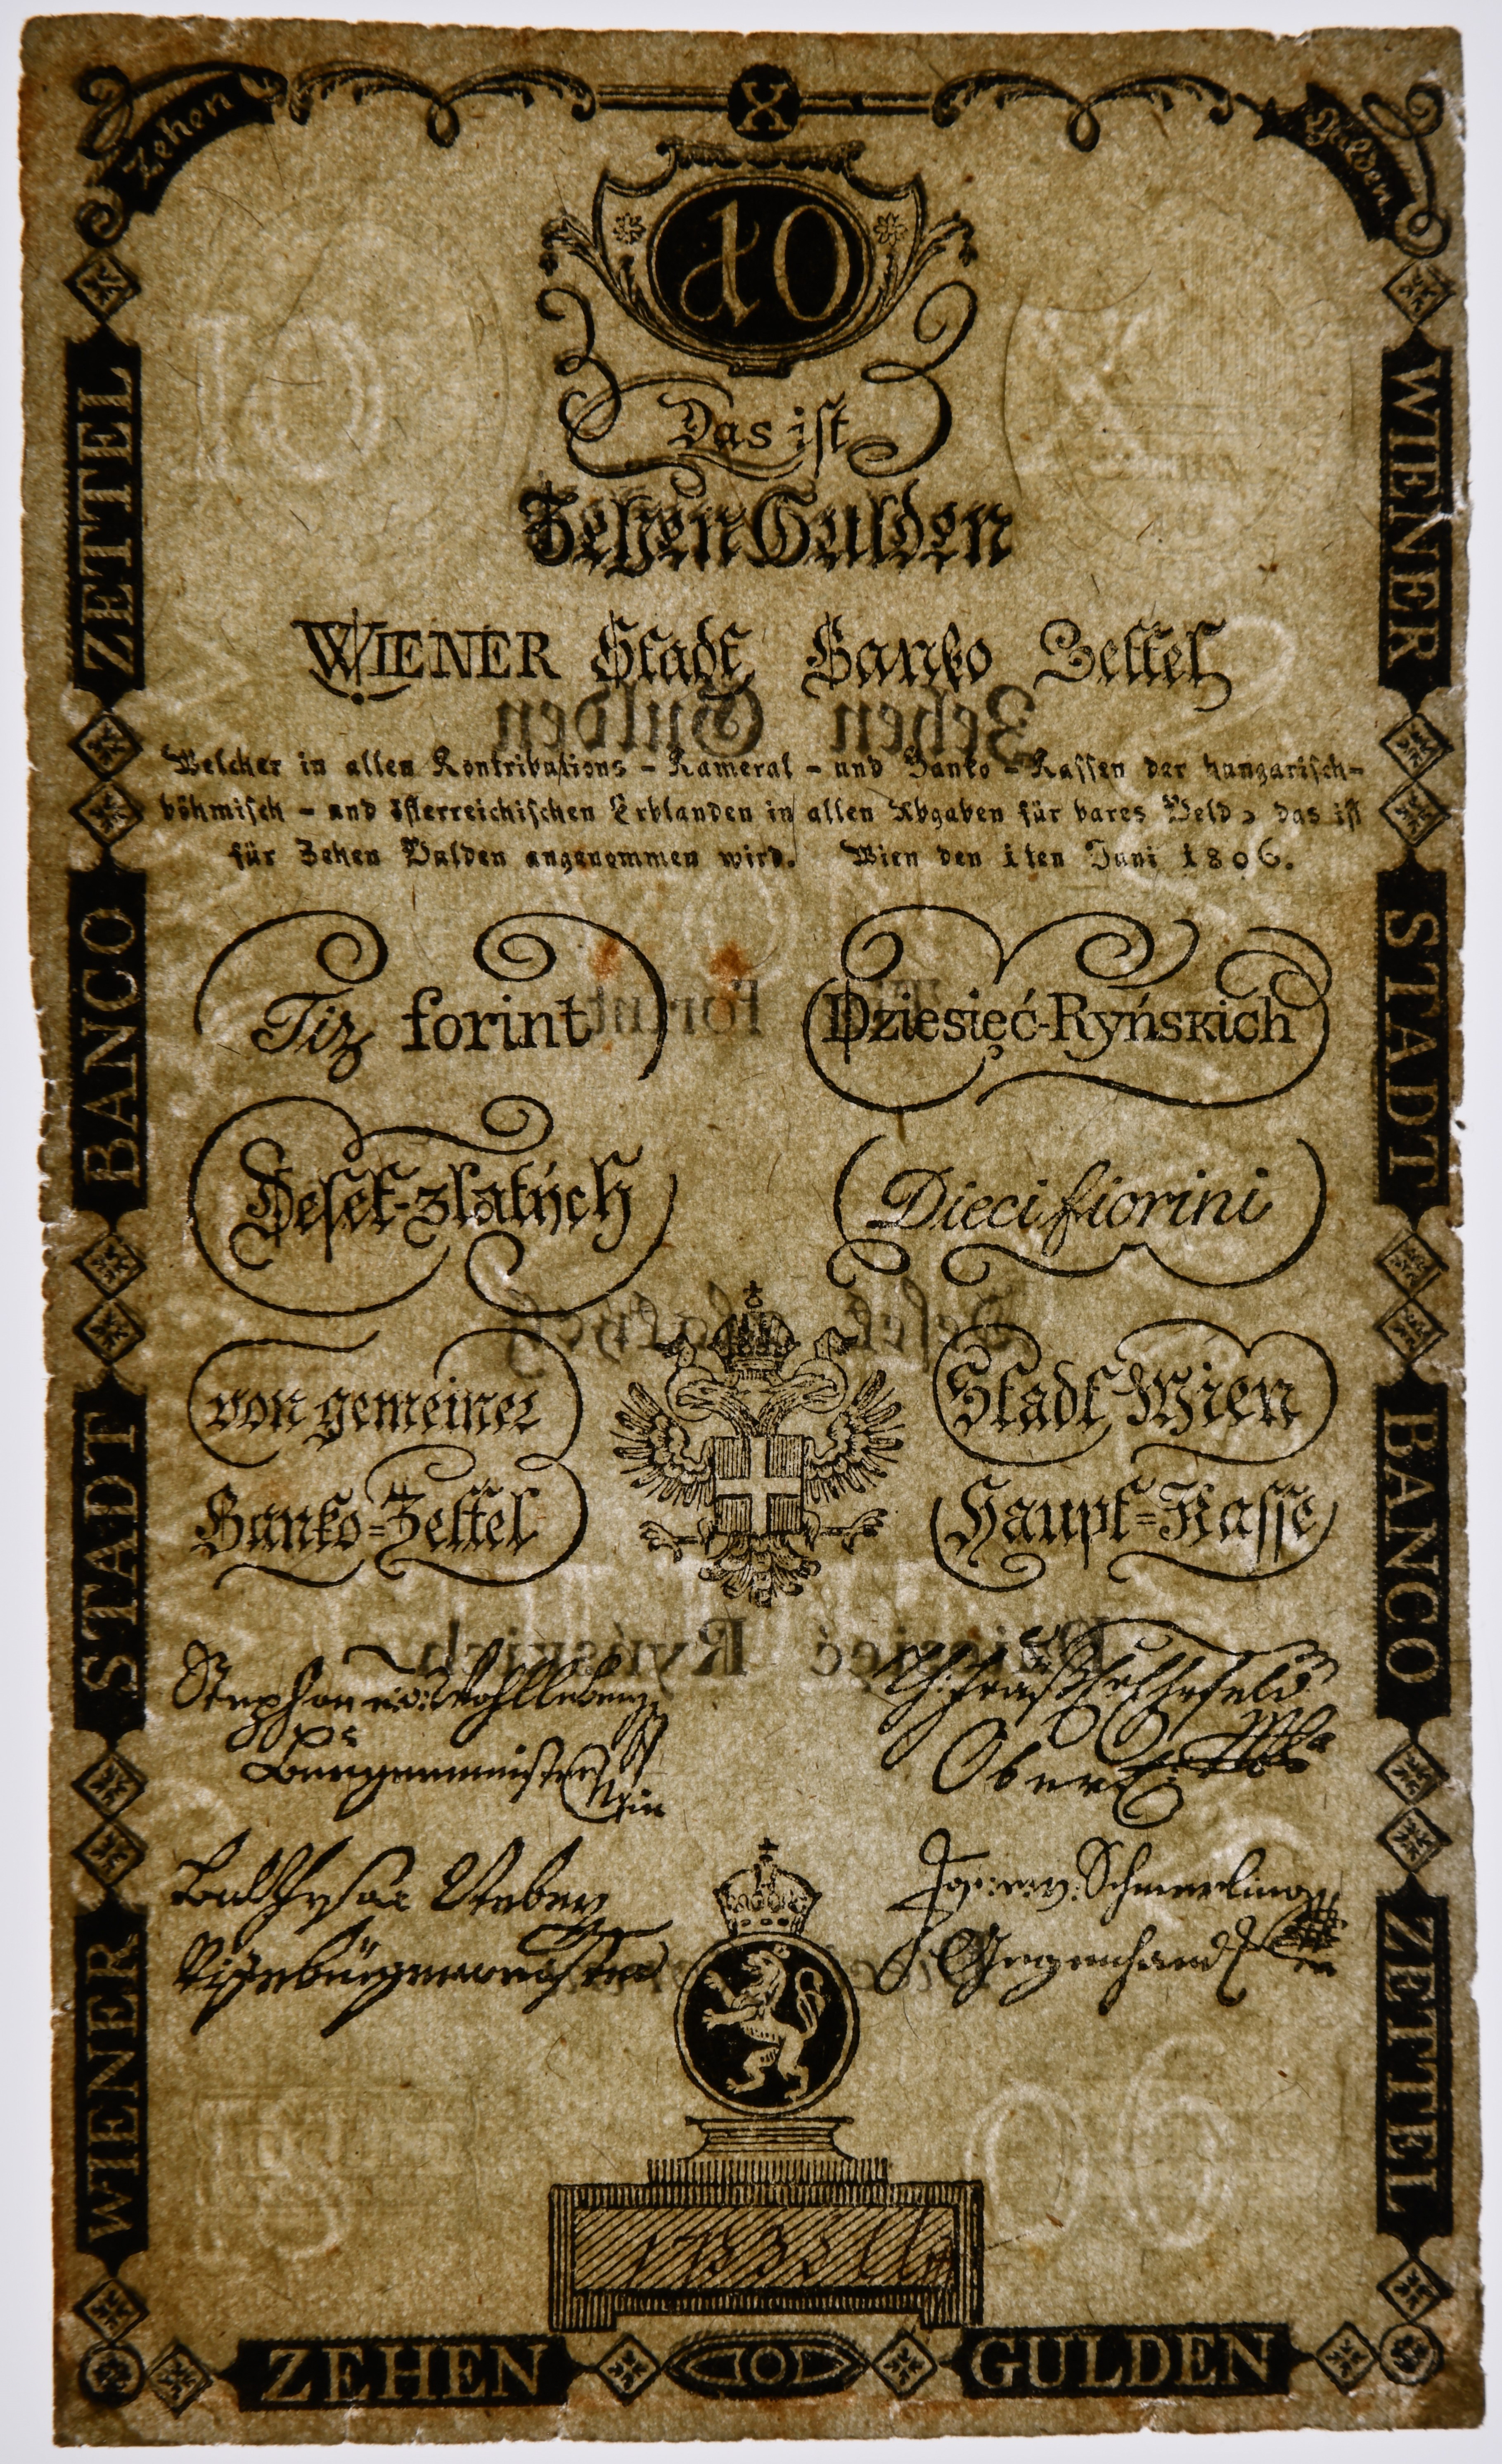 Zehen
X
Gulden
10
Das ist
Zehen Gulden
WIENER Stadt Banko Zettel
Welcher in allen Kontributions - Kameral - und Banko - Kassen der hungarisch-
böhmisch - und österreichischen Erblanden in allen Abgaben für bares Geld, das ist
für Zehen Gulden angenommen wird. Wien den 1ten Juni 1806.
Tiz forint
Dziesięć-Ryńskich
Deset-zlatých
Dieci fiorini
von gemeiner
Stadt Wien
Banko=Zettel
Haupt=Kasse
Stephan
Bürgermeister
Ober
Schmerling
Gegenhand
WIENER STADT BANCO ZETTEL
WIENER STADT BANCO ZETTEL
ZEHEN GULDEN
10
X
Zehen Gulden
forint
Deset zlatých
Dziesięć Ryńskich
18
06